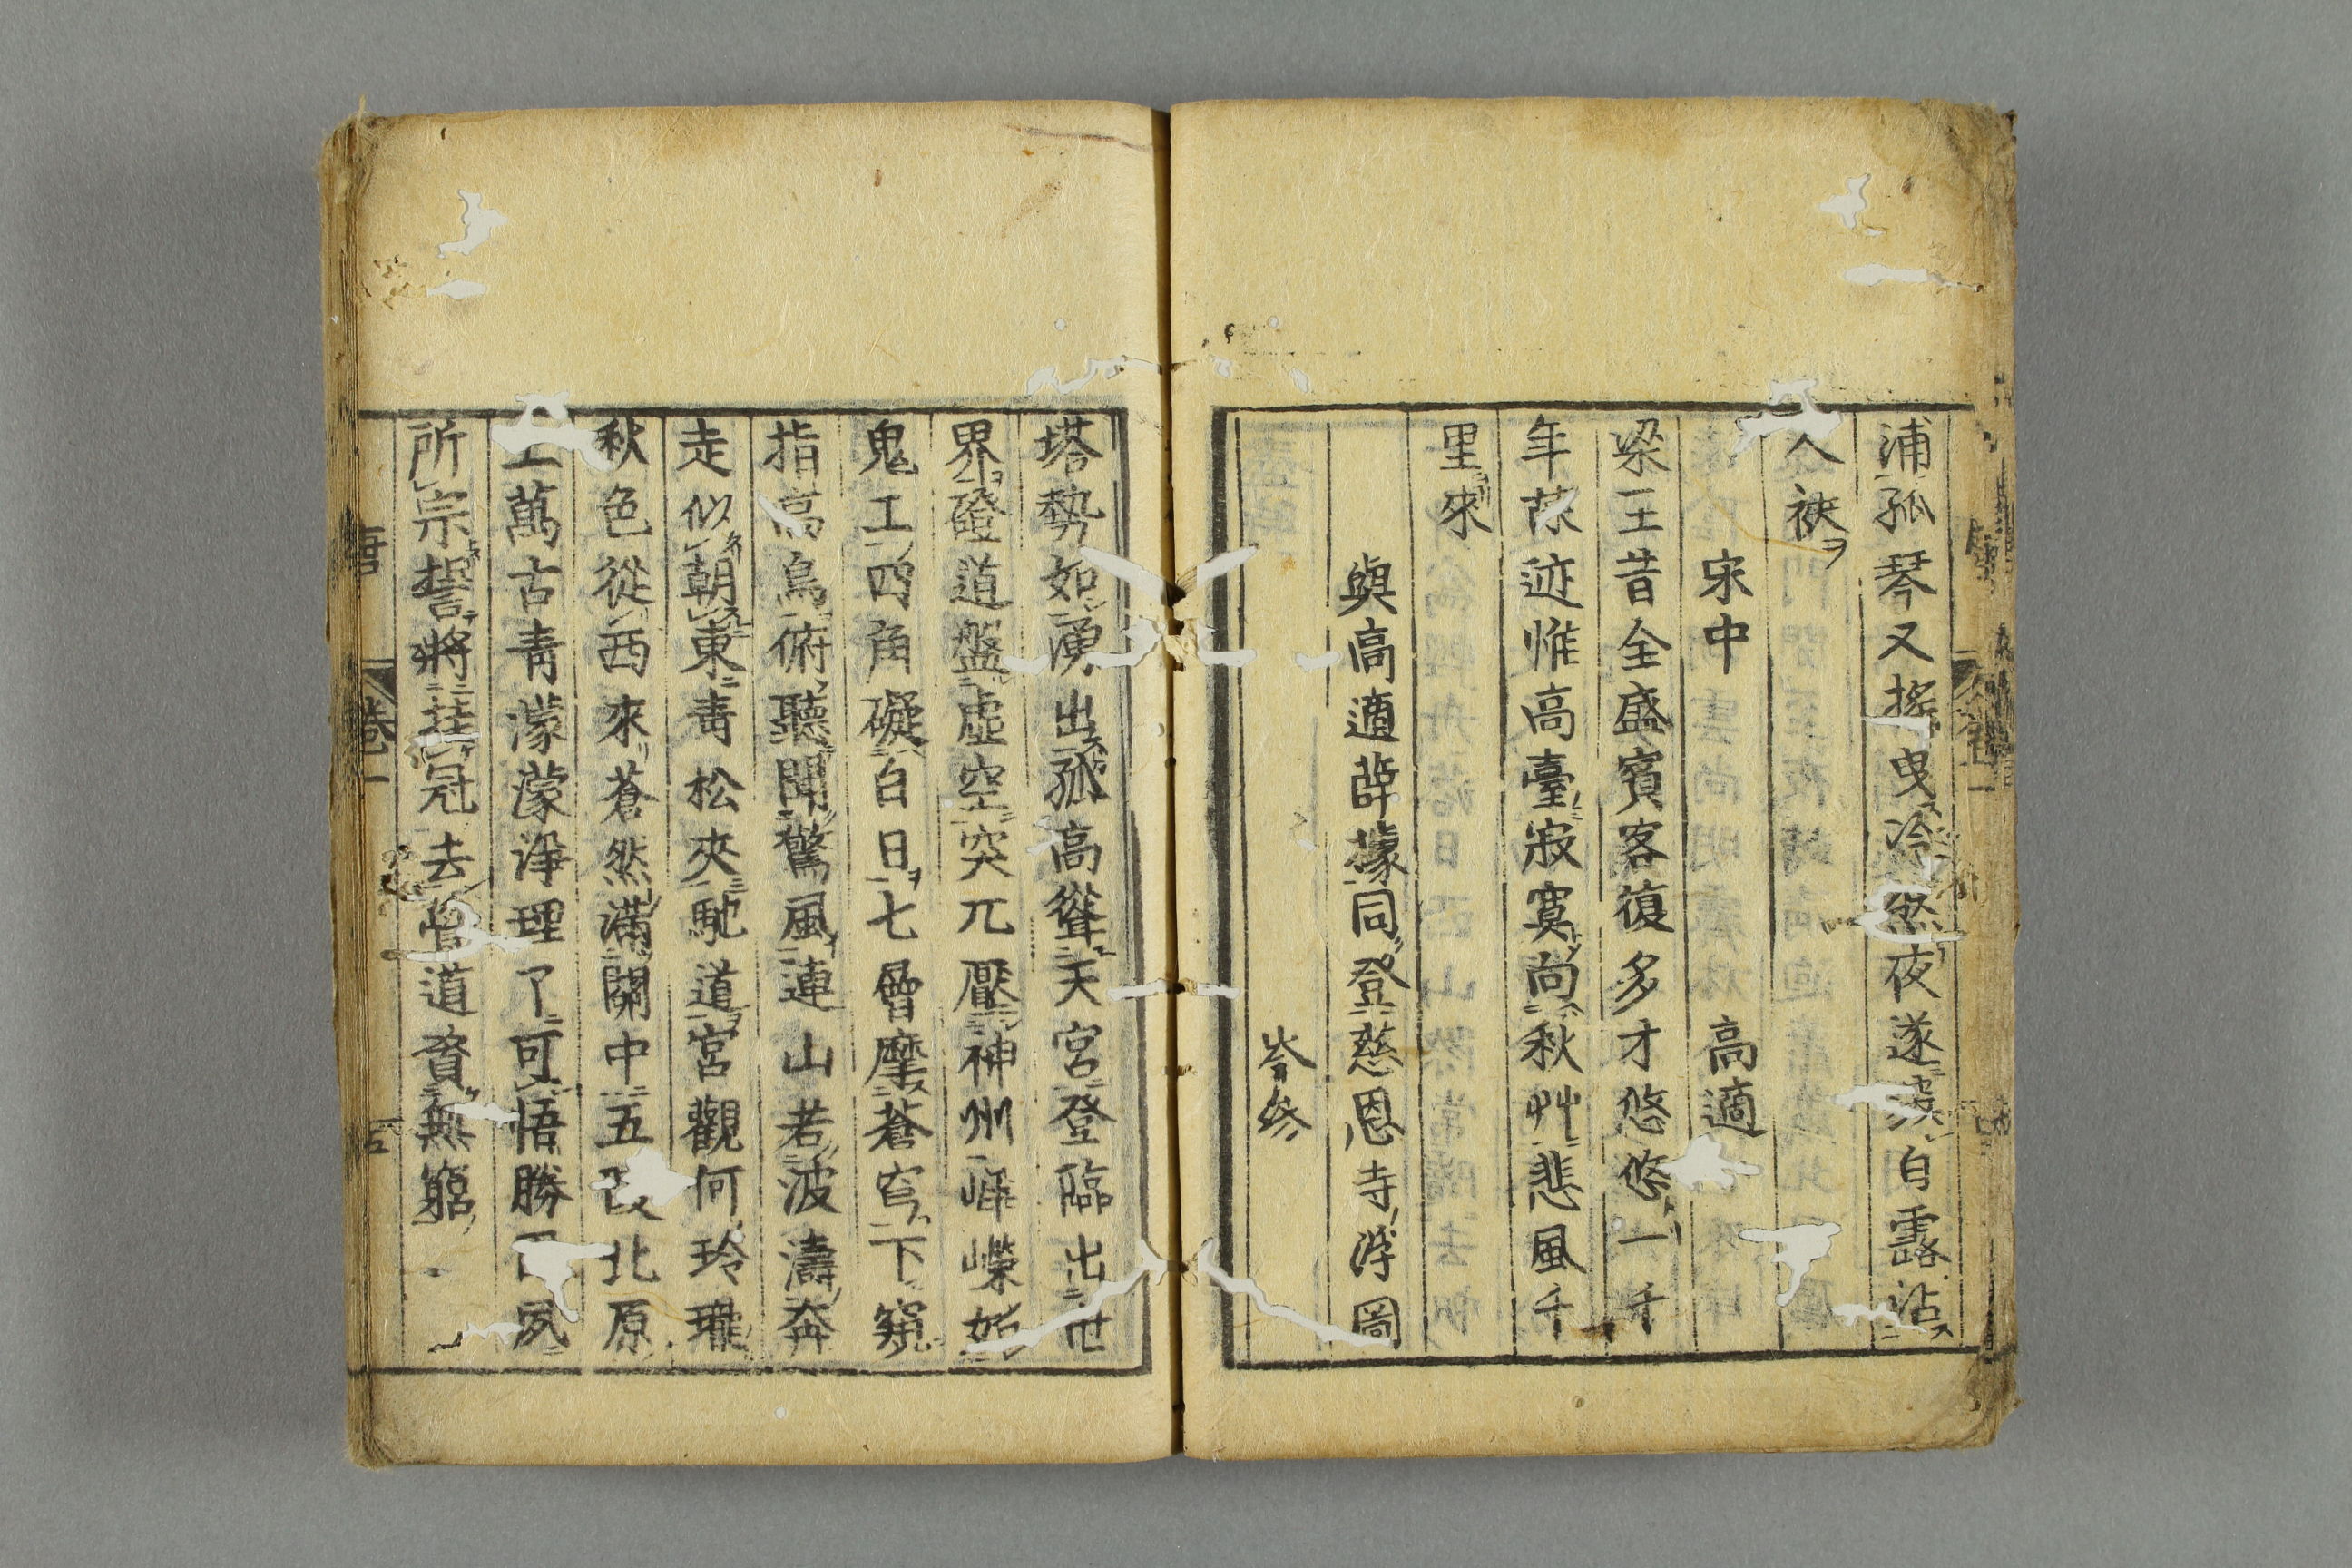 浦孤琴又搖曳冷然夜遂深白露沾
人袂
宋中　高適
梁王昔全盛賓客復多才悠悠一千
年陳迹惟高臺寂寞尚秋艸悲風千
里來
與高適薛㨿同登慈恩寺浮圖
岑參
塔勢如湧出孤高聳天宮登臨出世
界磴道盤虛空突兀壓神州崢嶸如
鬼工四角礙白日七層摩蒼穹下窺
指高鳥俯聽聞驚風連山若波濤奔
走似朝東青松夾馳道宮觀何玲瓏
秋色從西來蒼然滿關中五北原
上萬古青濛濛淨理了可悟勝夙
所宗誓將挂冠去道資無窮
卷一
五